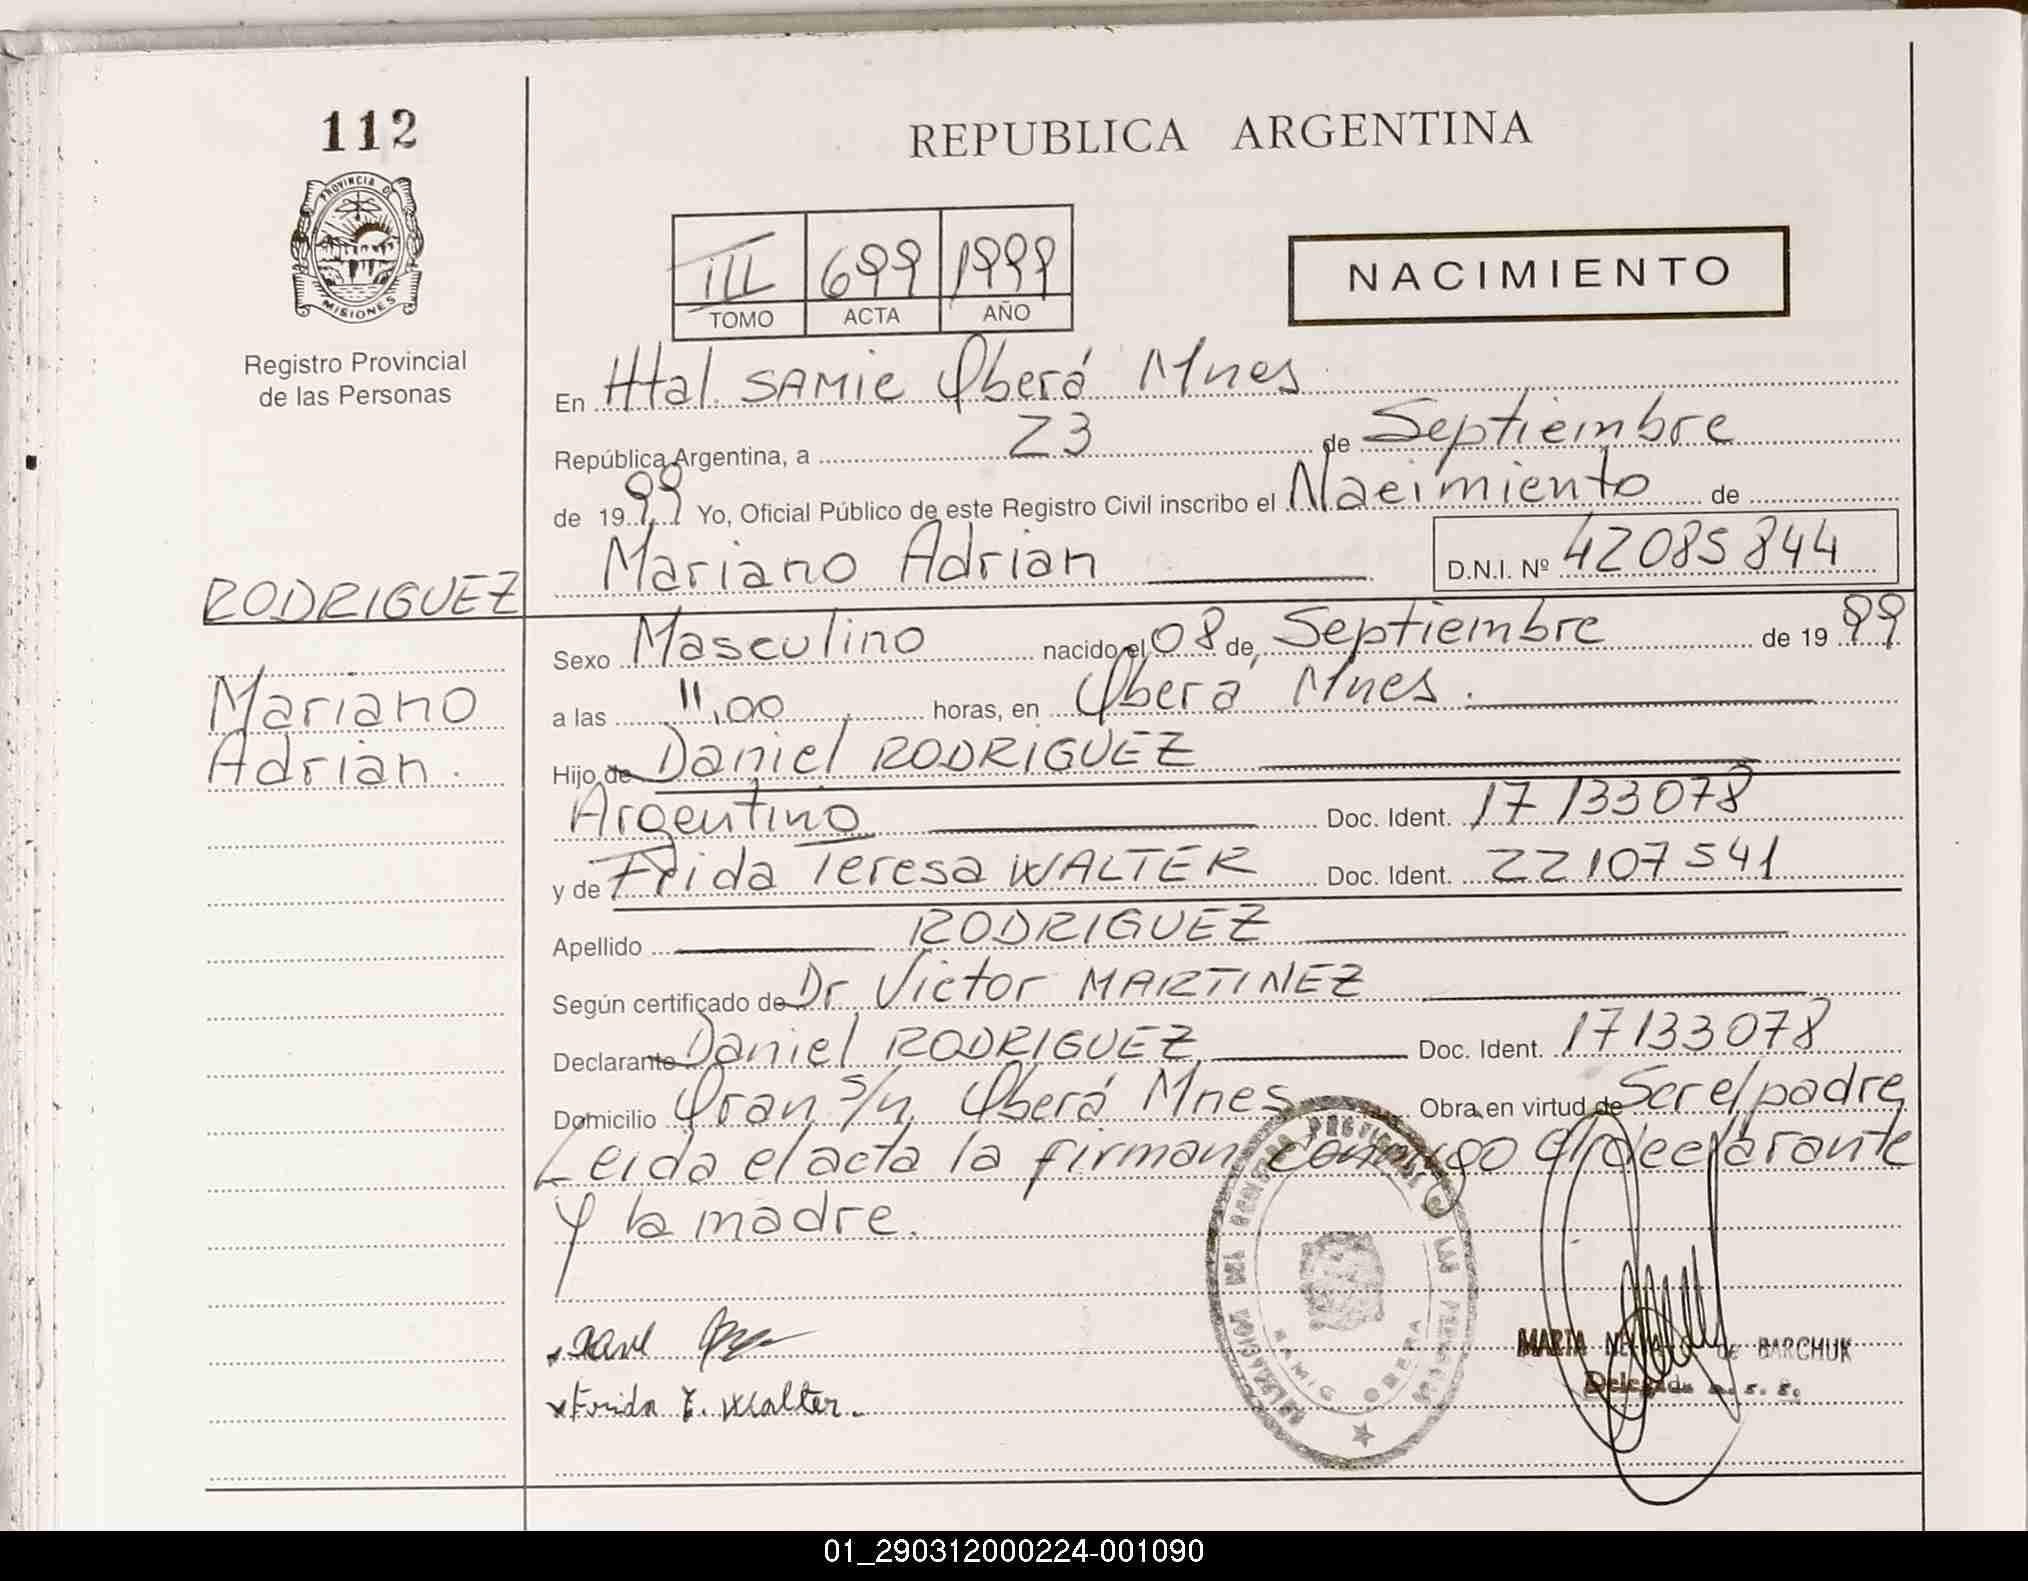 112
PROVINCIA DE
MISIONES
Registro Provincial
de las Personas
RODRIGUEZ
Mariano
Adrian.
REPUBLICA ARGENTINA
III 699 1999
TOMO ACTA AÑO
NACIMIENTO
En Htal. SAMIC Oberá Mnes
República Argentina, a 23 de Septiembre
de 1999 Yo, Oficial Público de este Registro Civil inscribo el Nacimiento de
Mariano Adrian D.N.I. Nº 42085844
Sexo Masculino nacido el 08 de Septiembre de 1999
a las 11,00 horas, en Oberá Mnes.
Hijo de Daniel RODRIGUEZ
Argentino Doc. Ident. 17133078
y de Frida Teresa WALTER Doc. Ident. 22107541
Apellido RODRIGUEZ
Según certificado de Dr Victor MARTINEZ
Declarante Daniel RODRIGUEZ Doc. Ident. 17133078
Domicilio Oran s/n Oberá Mnes Obra en virtud de Ser el padre
Leida el acta la firman conmigo el declarante
y la madre.
x Frida T. Walter.
SAMIC OBERA
MARIA DE BARCHUK
01_290312000224-001090